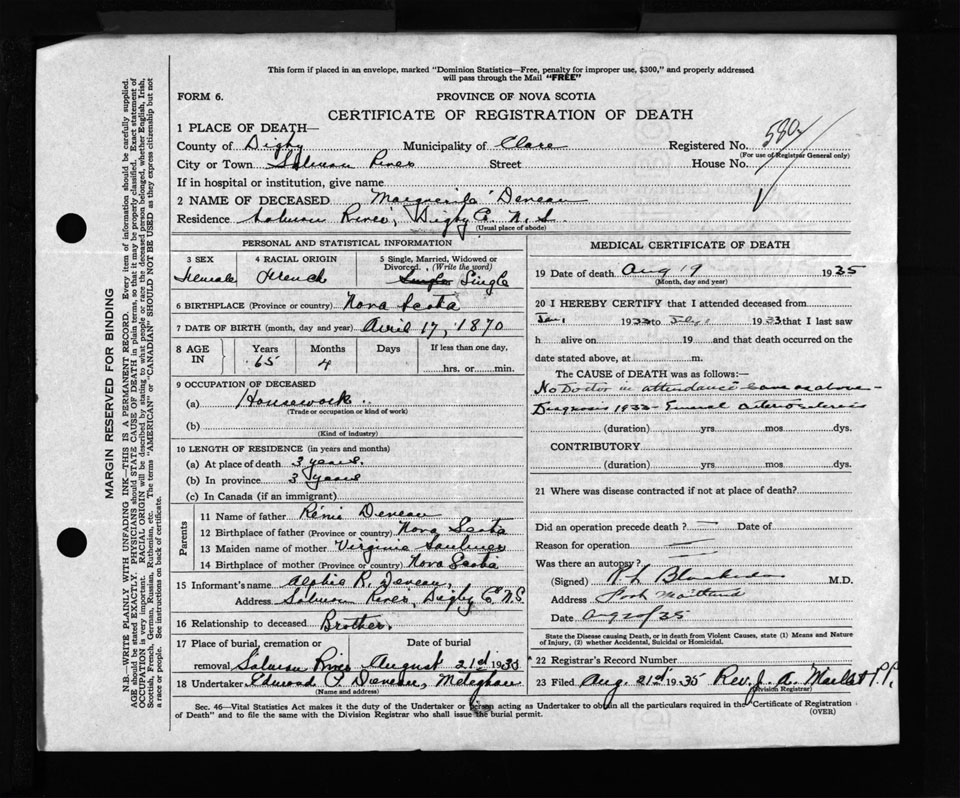 This form if placed in an envelope, marked "Dominion Statistics—Free, penalty for improper use, $300," and properly addressed
will pass through the Mail "FREE"
FORM 6.
PROVINCE OF NOVA SCOTIA
CERTIFICATE OF REGISTRATION OF DEATH
1 PLACE OF DEATH—
County of Digby Municipality of Clare Registered No.
(For use of Registrar General only)
City or Town Salmon River Street House No.
If in hospital or institution, give name
2 NAME OF DECEASED Marguerite Deveau
Residence Salmon River, Digby Co. N.S.
(Usual place of abode)
PERSONAL AND STATISTICAL INFORMATION
3 SEX 4 RACIAL ORIGIN 5 Single, Married, Widowed or
Divorced. (Write the word)
Female French Single Single
6 BIRTHPLACE (Province or country) Nova Scotia
7 DATE OF BIRTH (month, day and year) April 17, 1870
8 AGE IN Years Months Days If less than one day,
65 4 hrs. or min.
9 OCCUPATION OF DECEASED
(a) Housework.
(Trade or occupation or kind of work)
(b)
(Kind of industry)
10 LENGTH OF RESIDENCE (in years and months)
(a) At place of death 3 years.
(b) In province 3 years
(c) In Canada (if an immigrant)
Parents
11 Name of father Rénie Deveau
12 Birthplace of father (Province or country) Nova Scotia
13 Maiden name of mother Virginie Saulnier
14 Birthplace of mother (Province or country) Nova Scotia
15 Informant's name R. Deveau,
Address Salmon River, Digby Co. N.S.
16 Relationship to deceased Brother.
17 Place of burial, cremation or Date of burial
removal Salmon River August 21st 1935
18 Undertaker Edmond P. Deveau, Meteghan
(Name and address)
MEDICAL CERTIFICATE OF DEATH
19 Date of death Aug 19 1935
(Month, day and year)
20 I HEREBY CERTIFY that I attended deceased from
Jan, 1933 to July 1933 that I last saw
h alive on 19 and that death occurred on the
date stated above, at m.
The CAUSE OF DEATH was as follows:—
No Doctor in attendance as above—
Diagnosis 1933— General arteriosclerosis
(duration) yrs. mos. dys.
CONTRIBUTORY
(duration) yrs. mos. dys.
21 Where was disease contracted if not at place of death?
Did an operation precede death? — Date of
Reason for operation —
Was there an autopsy? —
(Signed) M.D.
Address Port Maitland
Date Aug 20/35
State the Disease causing Death, or in death from Violent Causes, state (1) Means and Nature
of Injury, (2) whether Accidental, Suicidal or Homicidal.
22 Registrar's Record Number
23 Filed Aug. 21st 1935 Rev. J. A. P.P.
Division Registrar)
Sec. 46—Vital Statistics Act makes it the duty of the Undertaker or person acting as Undertaker to obtain all the particulars required in the Certificate of Registration
of Death" and to file the same with the Division Registrar who shall issue the burial permit.
(OVER)
MARGIN RESERVED FOR BINDING
N.B.—WRITE PLAINLY WITH UNFADING INK—THIS IS A PERMANENT RECORD. Every item of information should be carefully supplied.
AGE should be stated EXACTLY. PHYSICIANS should STATE CAUSE OF DEATH in plain terms, so that it may be properly classified. Exact statement of
OCCUPATION is very important. RACIAL ORIGIN will be described by stating to what people or race the deceased person belonged, whether English, Irish,
Scottish, French, German, Russian, Ruthenian, etc. The terms "AMERICAN" or "CANADIAN" SHOULD NOT BE USED as they express citizenship but not
a race or people. See instructions on back of certificate.